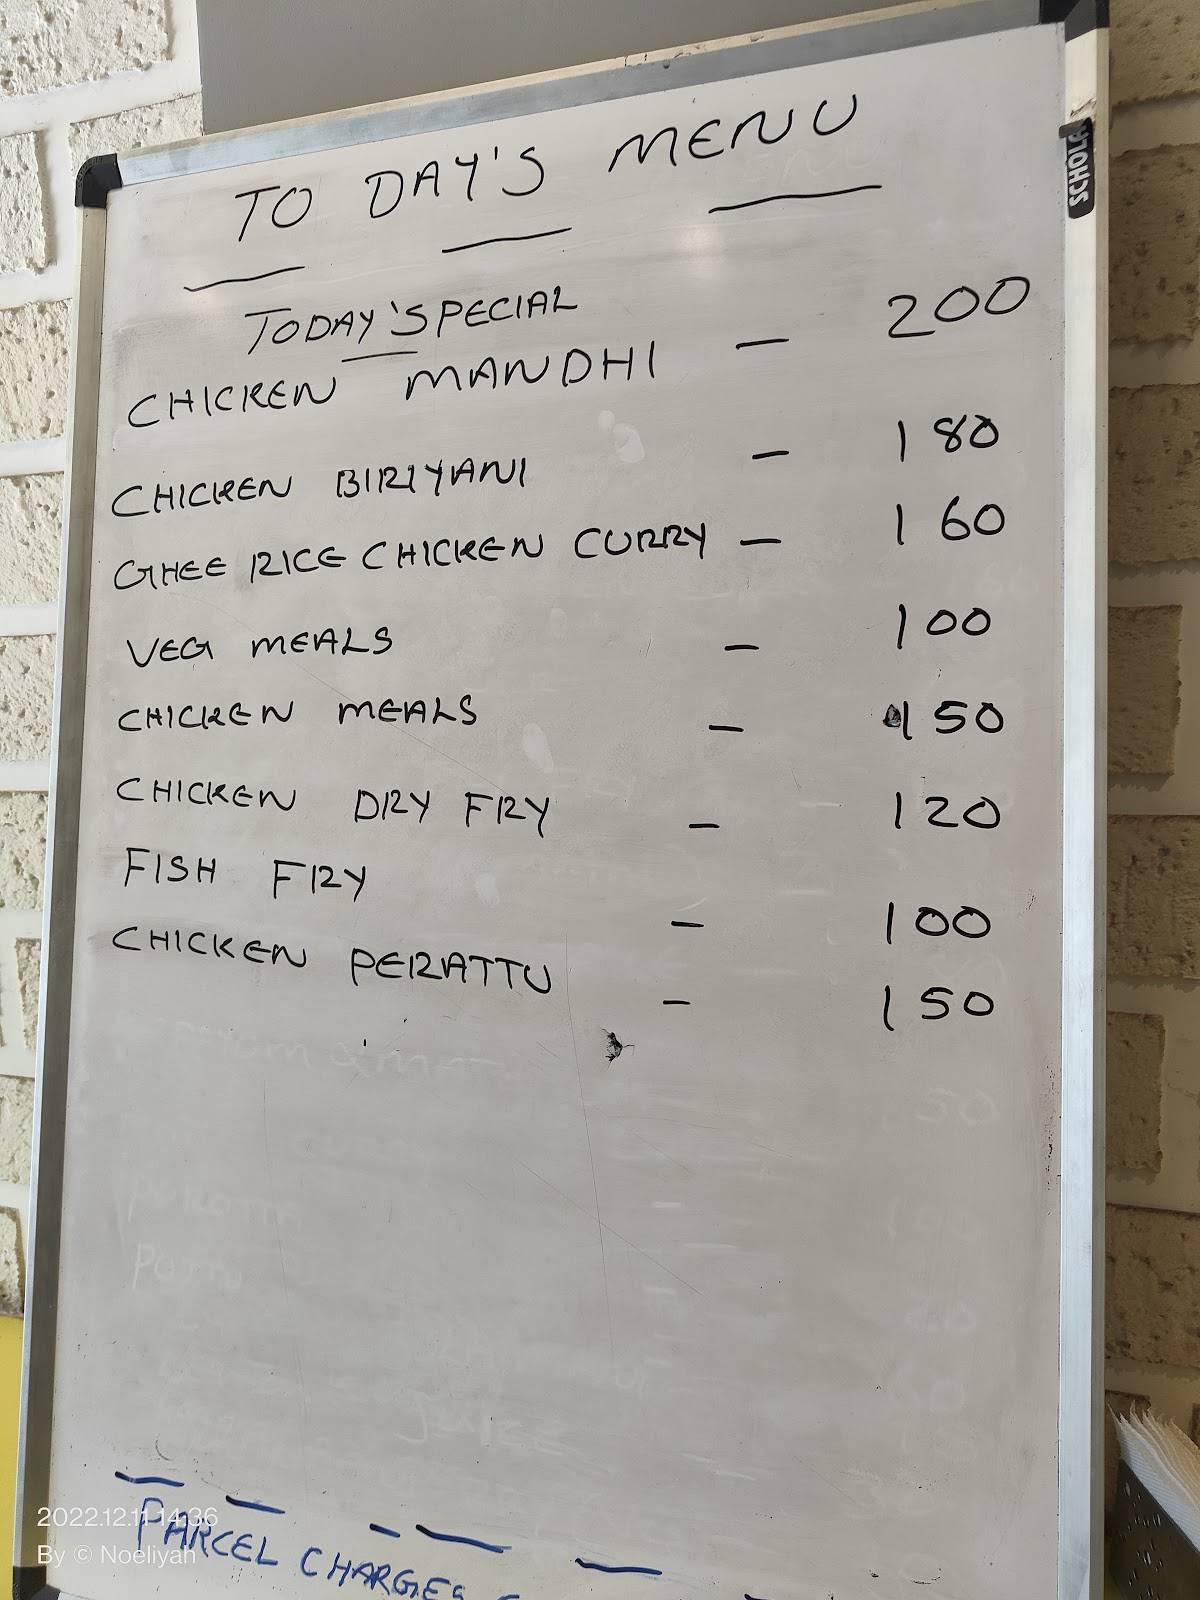 TO DAY'S MENU
TODAY'SPECIAL
CHICKEN MANDHI - 200
CHICKEN BIRIYANI - 180
GHEE RICE CHICKEN CURRY - 160
VEG MEALS - 100
CHICKEN MEALS - 150
CHICKEN DRY FRY - 120
FISH FRY - 100
CHICKEN PERATTU - 150
PARCEL CHARGES
2022.12.11 14:36
By © Noeliyah